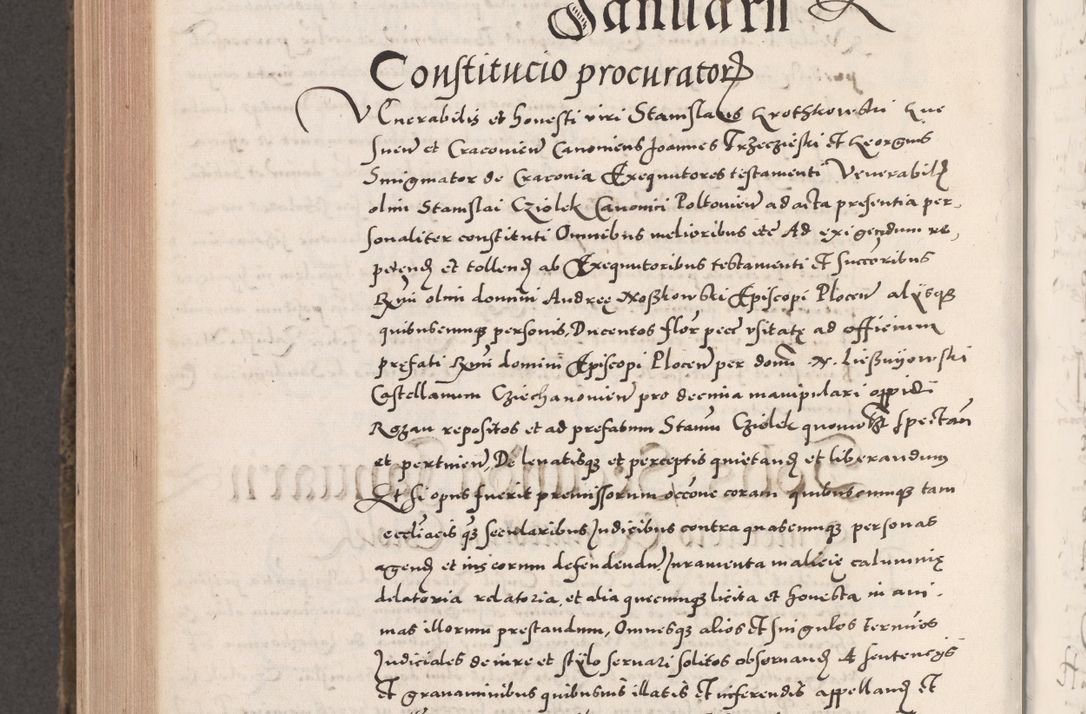 Januarii
Constitucio procurator
Venerabilis et honesti viri Stanislaus Krothkowski Kue
snen et Cracovien Canonicus Joannes Trzeczieski et Georgius
Smigmator de Cracovia Exequutores testamenti Venerabil
olim Stanislai Cziolek Canonici Poltovien ad acta presentia per,
sonaliter constituti Omnibus melioribus etc Ad exigendum re,
petend et tollend ab Exequutoribus testamenti et successoribus
Rmi olim domini Andreę Noskowski Episcopi Plocen aliisque
quibuscumque personis, Ducentos flor pecc usitatę ad officium
pręfati Rmi domini Episcopi Plocen per domi N. Liesznyowski
Castellanum Cziechanovien pro decima manipulari oppidi
Rozan repositos et ad prefatum Stanis Cziolek quomo spectan
et pertinen, De levatisque et perceptis quietand et liberandum
Et si opus fuerit premissorum occone coram quibuscumque tam
eccliacis que secularibus Judicibus contra quascumque personas
agend et ius eorum defendendu Juramenta malicie calumnię
dilatoria relatoria, et alia quecumque licita et honesta in ani,
mas illorum prestandum, Omnesque alios et singulos terminos
Judiciales de iure et stylo servari solitos observand et sentencys
et gravaminibus quibusvis illatis et inferendis appelland et